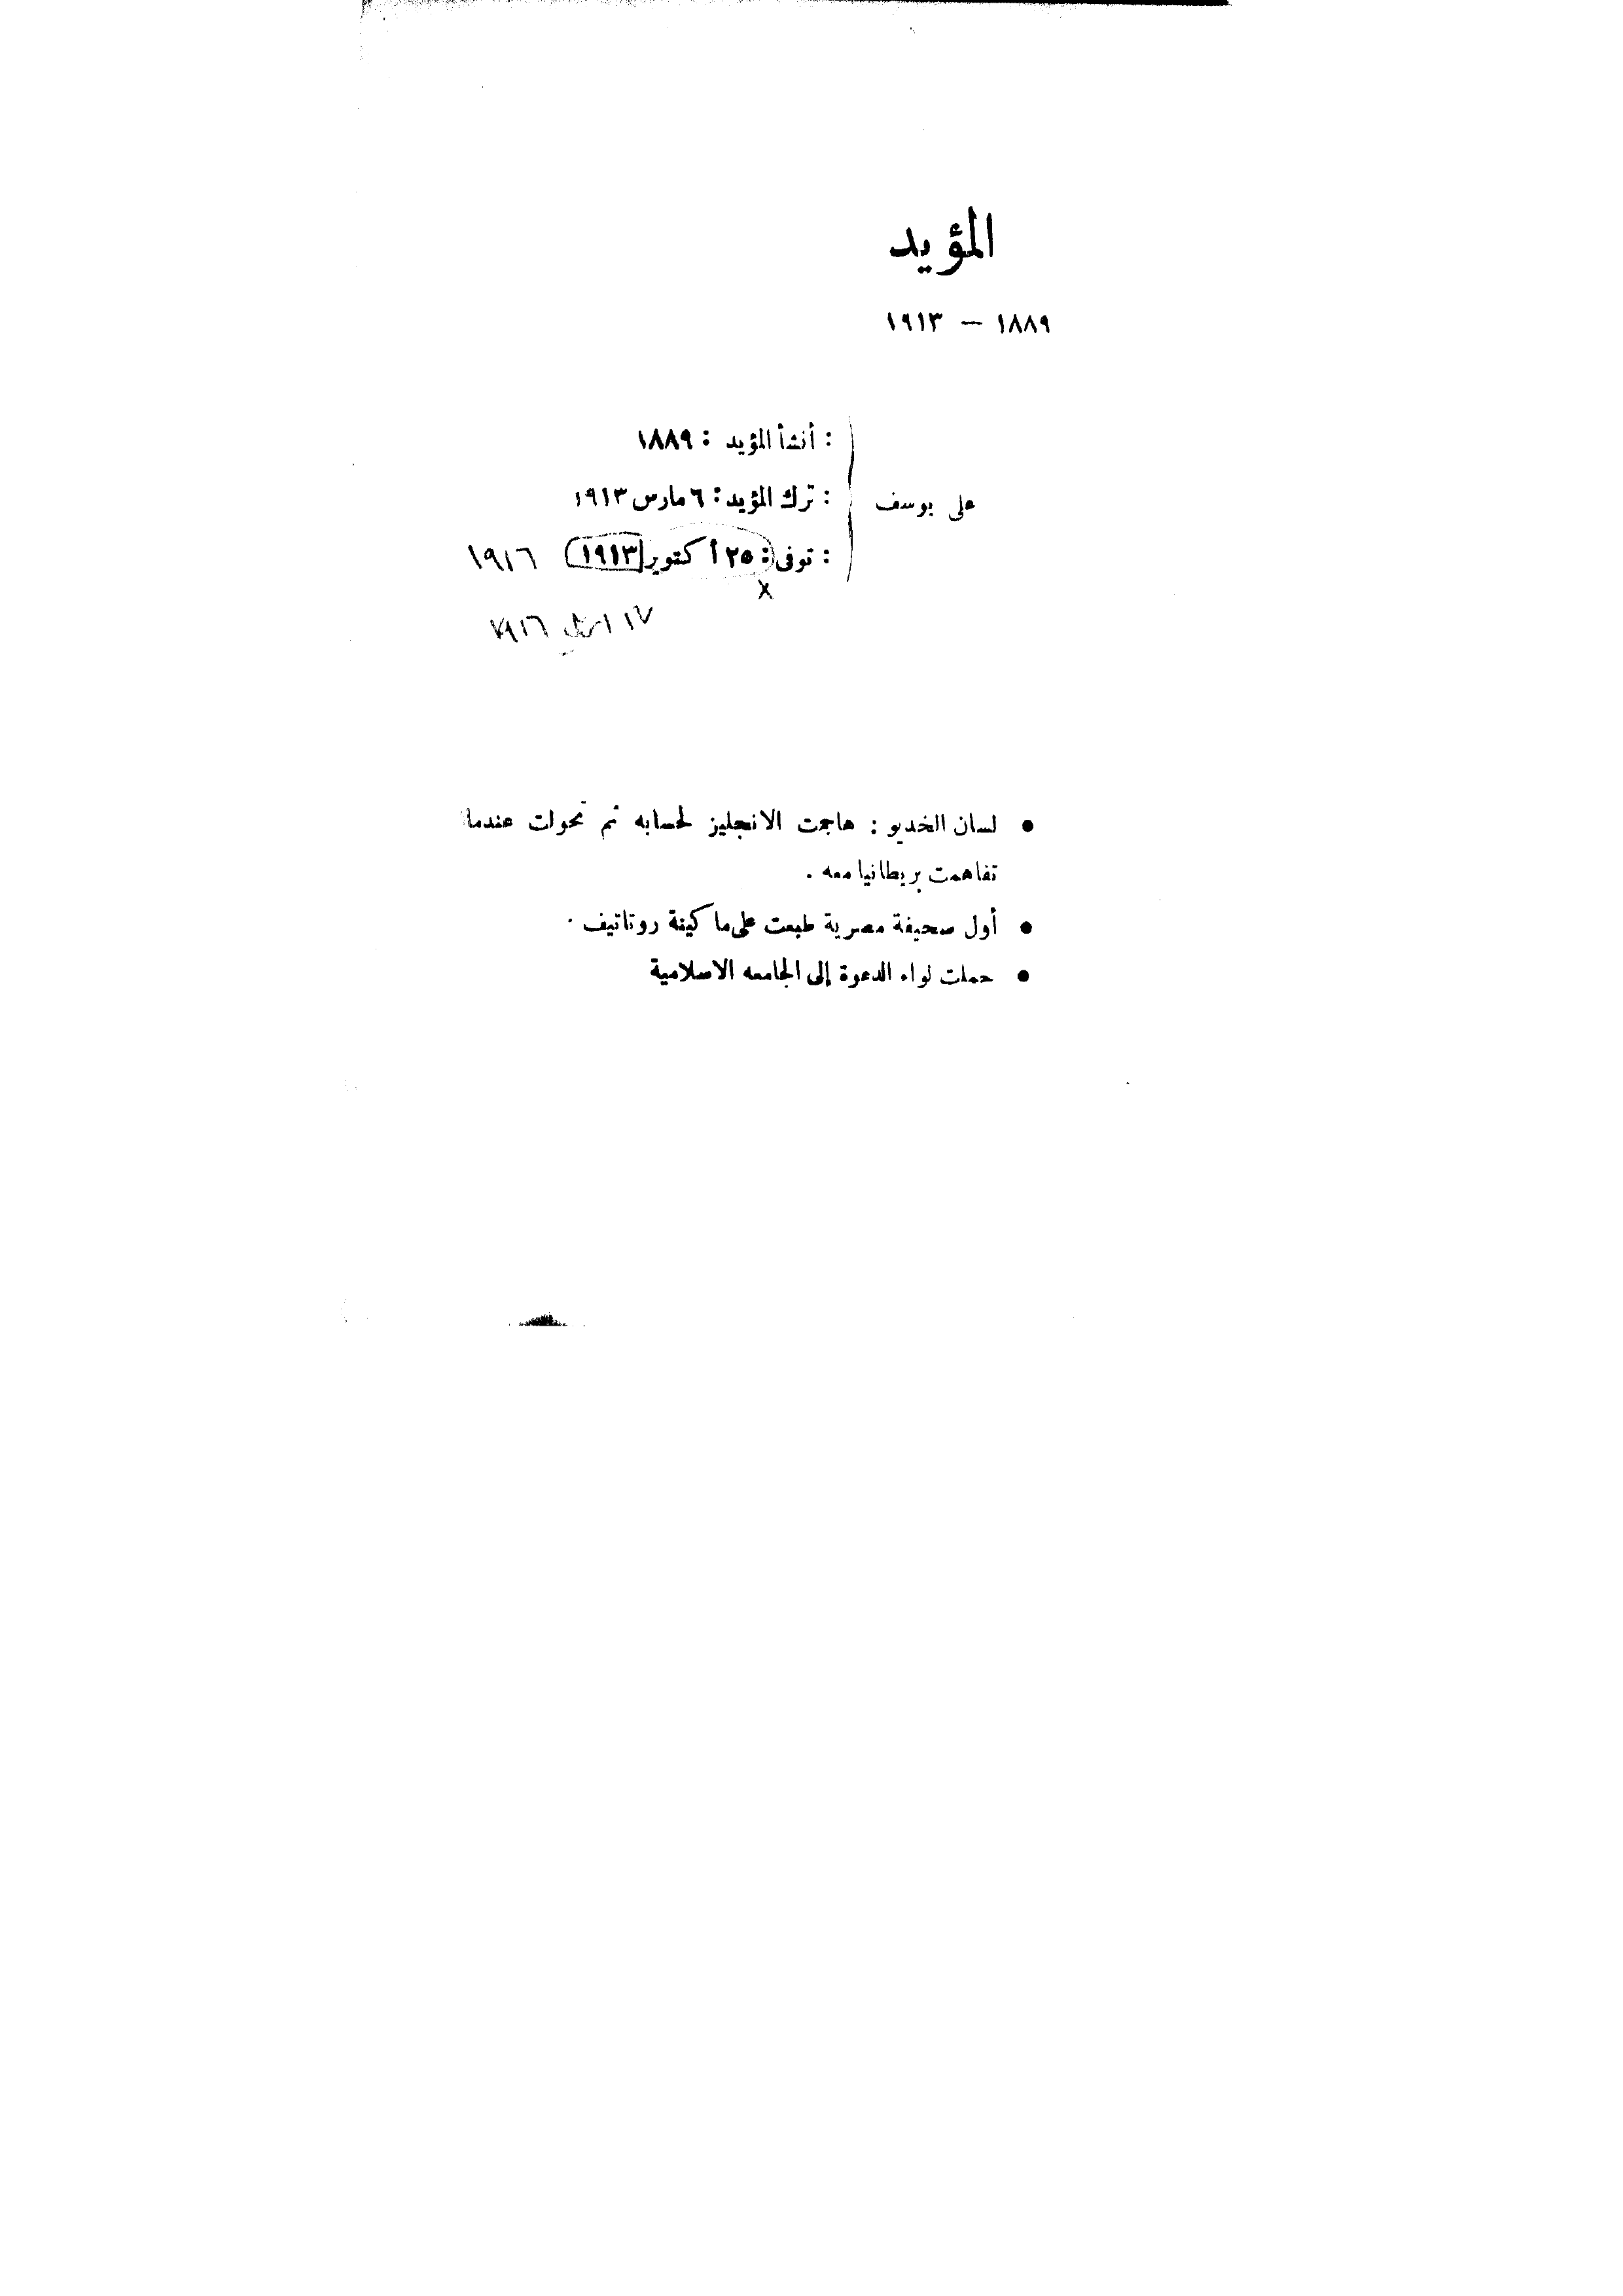 المؤيد
١٨٨٩ — ١٩١٣
: أنشأ المؤيد : ١٨٨٩
على يوسف : ترك المؤيد : ٦ مارس ١٩١٣
: توفى : ٢٥ أكتوبر ١٩١٣ ١٩١٦
ابريل ١٩١٦
● لسان الخديو : هاجمت الانجليز لحسابه ثم تحولت عندما
تفاهمت بريطانيا معه .
● أول صحيفة مصرية طبعت على ماكينة روتاتيف .
● حملت لواء الدعوة إلى الجامعه الاسلامية